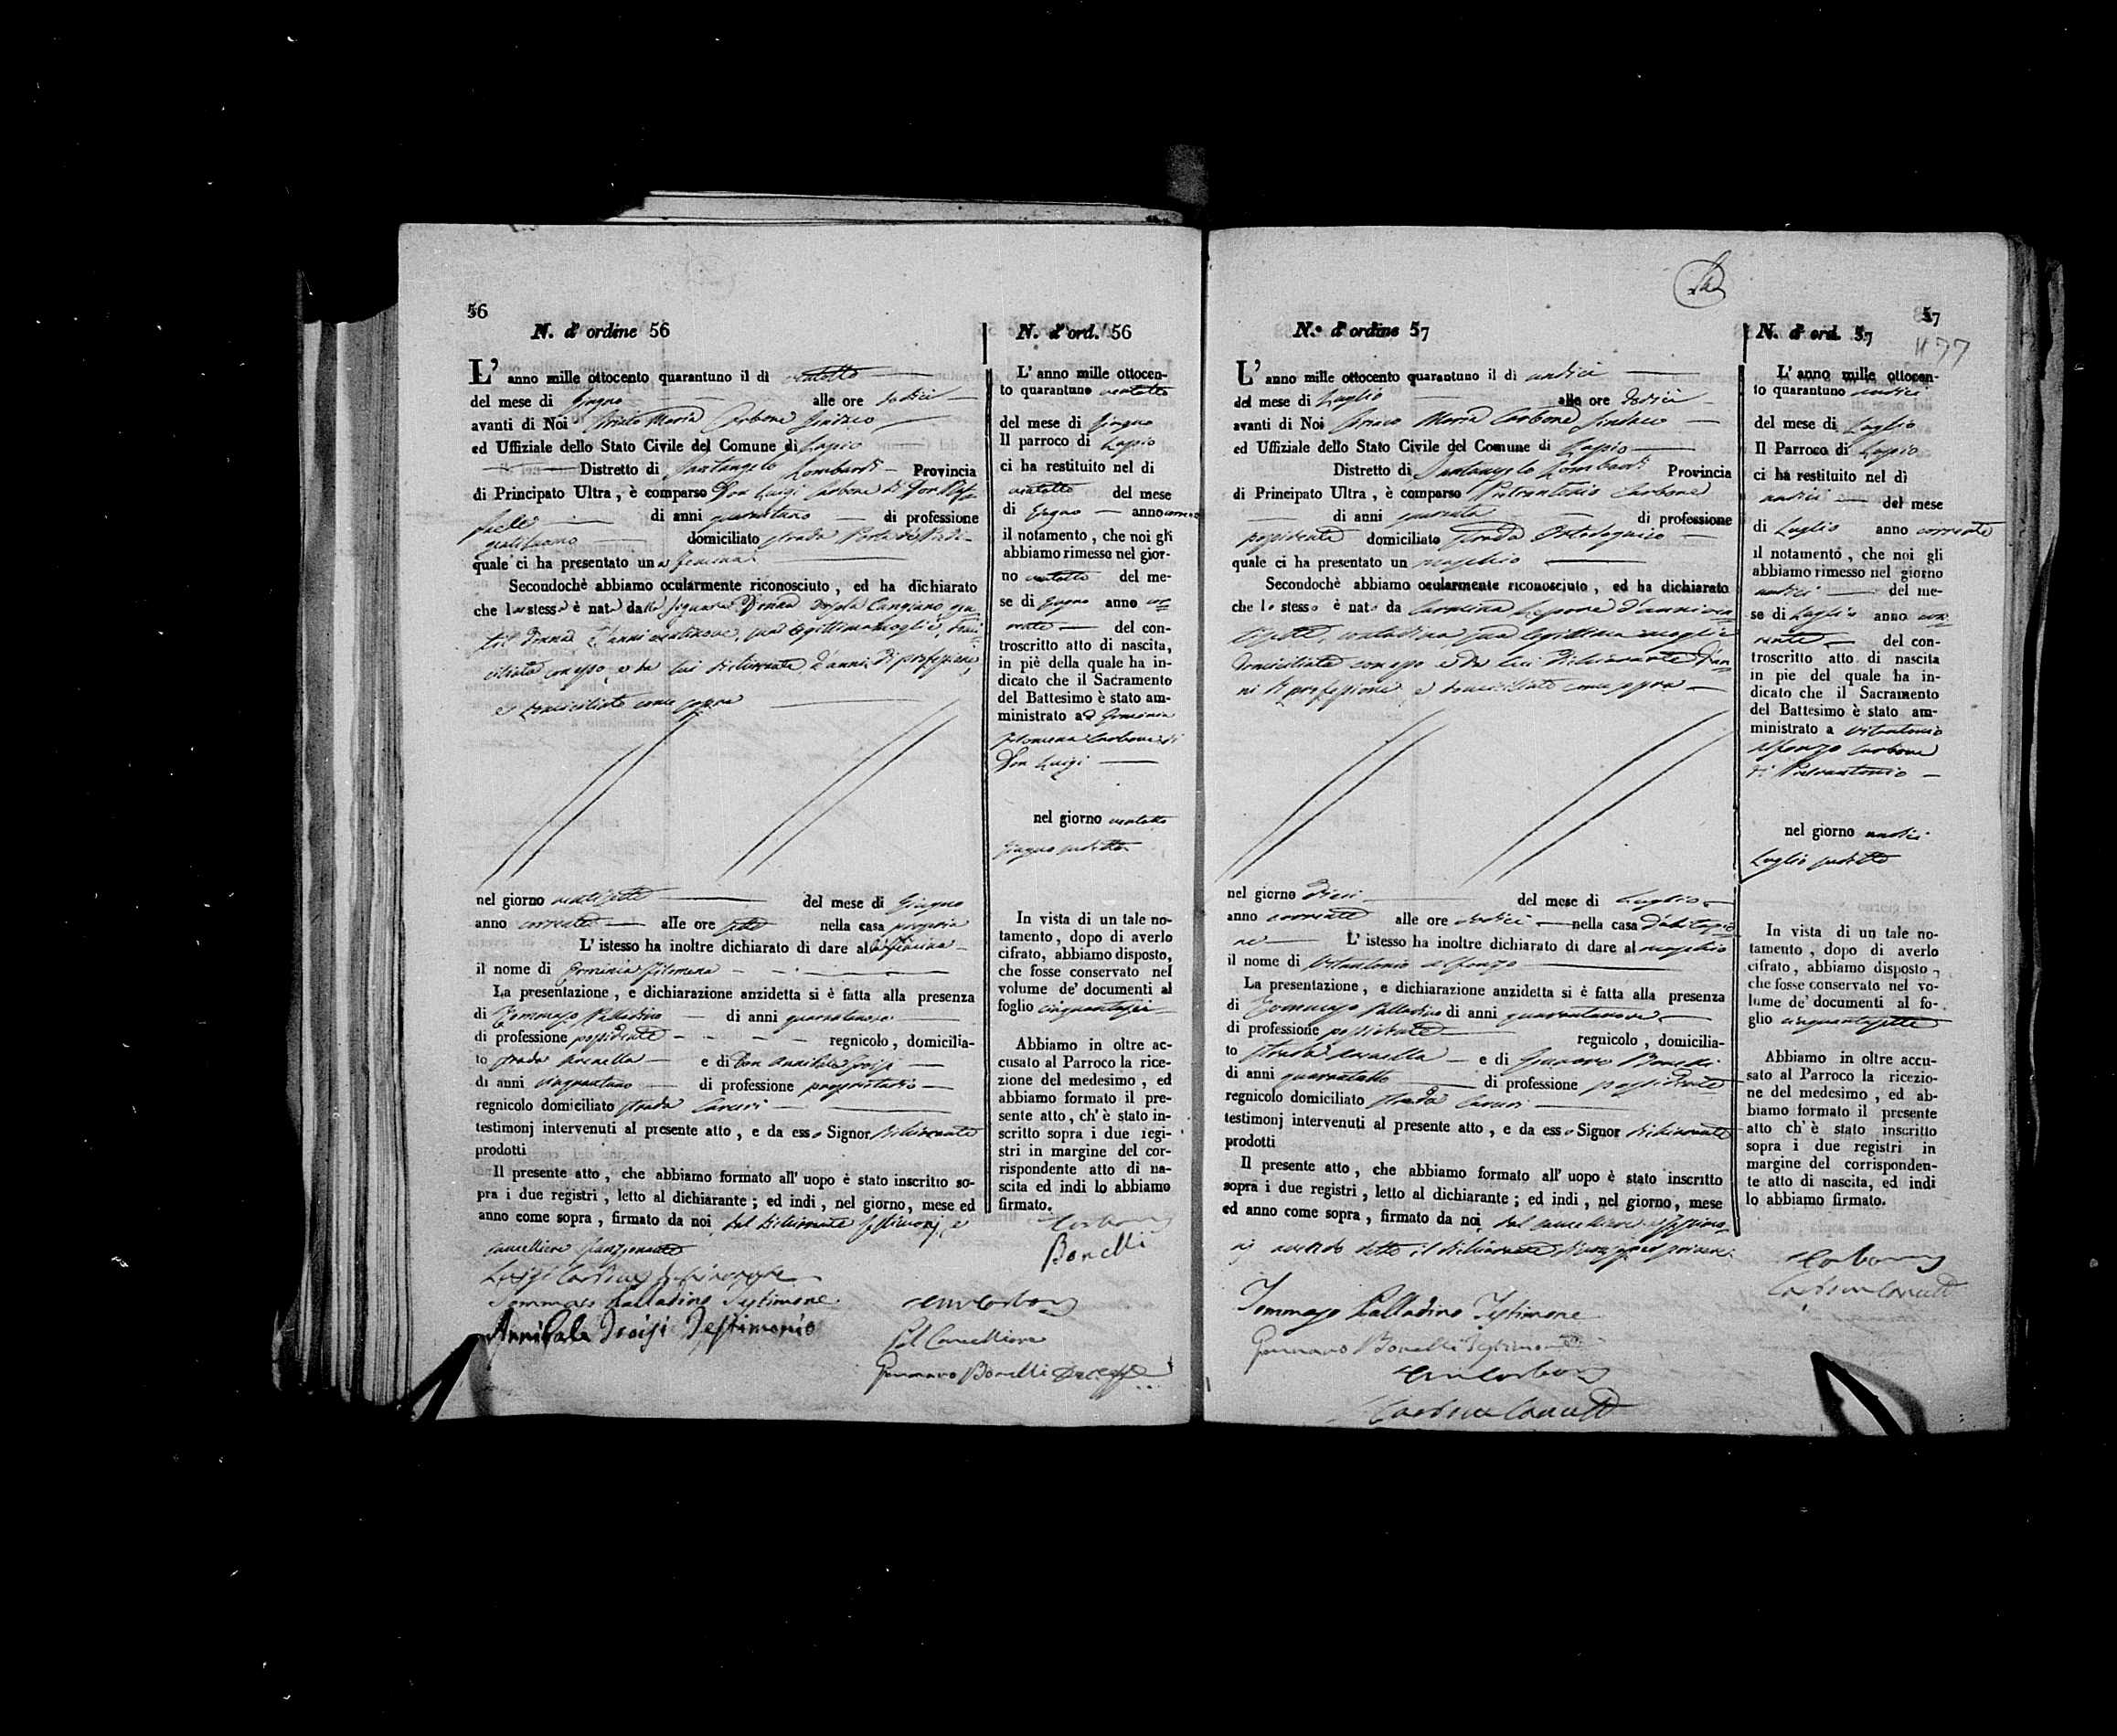 56
N. d' ordine 56
L' anno mille ottocento quarantuno il dì ventotto
del mese di Giugno alle ore dodici
avanti di Noi Maria Carbone Sindaco
ed Uffiziale dello Stato Civile del Comune di Lapio
Distretto di Santangelo Lombardi Provincia
di Principato Ultra, è comparso Don Luigi Carbone di Don Raf-
faele di anni quarantuno di professione
galantuomo domiciliato strada
quale ci ha presentato una femina
Secondochè abbiamo ocularmente riconosciuto, ed ha dichiarato
che la stessa è nata dalla Signora Donna Cangiano, gen-
til Donna d'anni ventinove, sua legittima moglie, domi-
ciliata con esso, e da lui dichiarante, d'anni, di professione,
e domiciliato come sopra
nel giorno ventisette del mese di Giugno
anno corrente alle ore sette nella casa propria
L' istesso ha inoltre dichiarato di dare alla femina
il nome di Erminia Filomena
La presentazione, e dichiarazione anzidetta si è fatta alla presenza
di Tommaso Palladino di anni quarantanove
di professione possidente regnicolo, domicilia-
to strada e di Don Annibale Troisi
di anni cinquantuno di professione proprietario
regnicolo domiciliato strada
testimonj intervenuti al presente atto, e da esso Signor dichiarante
prodotti
Il presente atto, che abbiamo formato all' uopo è stato inscritto so-
pra i due registri, letto al dichiarante; ed indi, nel giorno, mese ed
anno come sopra, firmato da noi, dal dichiarante testimonj, e
cancelliere funzionante
Luigi Carbone
Tommaso Palladino Testimone
Annibale Troisi Testimonio
Carbone
Pel Cancelliere
Gennaro Bonelli
N. d' ord. 56
L' anno mille ottocen-
to quarantuno ventotto
del mese di Giugno
Il parroco di Lapio
ci ha restituito nel dì
ventotto del mese
di Giugno anno corrente
il notamento, che noi gli
abbiamo rimesso nel gior-
no ventotto del me-
se di Giugno anno cor-
rente del con-
troscritto atto di nascita,
in piè della quale ha in-
dicato che il Sacramento
del Battesimo è stato am-
ministrato ad Erminia
Filomena Carbone di
Don Luigi
nel giorno ventotto
Giugno suddetto
In vista di un tale no-
tamento, dopo di averlo
cifrato, abbiamo disposto,
che fosse conservato nel
volume de' documenti al
foglio cinquantasei
Abbiamo in oltre ac-
cusato al Parroco la rice-
zione del medesimo, ed
abbiamo formato il pre-
sente atto, ch' è stato in-
scritto sopra i due regi-
stri in margine del cor-
rispondente atto di na-
scita ed indi lo abbiamo
firmato.
Carbone
Bonelli
57
1177
N. d' ordine 57
L' anno mille ottocento quarantuno il dì undici
del mese di Luglio alle ore dodici
avanti di Noi Maria Carbone Sindaco
ed Uffiziale dello Stato Civile del Comune di Lapio
Distretto di Santangelo Lombardi Provincia
di Principato Ultra, è comparso Pietrantonio Carbone
di anni quaranta di professione
possidente domiciliato strada
quale ci ha presentato un maschio
Secondochè abbiamo ocularmente riconosciuto, ed ha dichiarato
che lo stesso è nato da Carolina d'anni ven-
tisette, contadina, sua legittima moglie
domiciliata con esso e da lui dichiarante d'an-
ni di professione, e domiciliato come sopra
nel giorno dieci del mese di Luglio
anno corrente alle ore dodici nella casa d'abitazio-
ne L' istesso ha inoltre dichiarato di dare al maschio
il nome di Vitantonio Alfonzo
La presentazione, e dichiarazione anzidetta si è fatta alla presenza
di Tommaso Palladino di anni quarantanove
di professione possidente regnicolo, domicilia-
to strada e di Gennaro Bonelli
di anni quarantotto di professione possidente
regnicolo domiciliato strada
testimonj intervenuti al presente atto, e da esso Signor dichiarante
prodotti
Il presente atto, che abbiamo formato all' uopo è stato inscritto
sopra i due registri, letto al dichiarante; ed indi, nel giorno, mese
ed anno come sopra, firmato da noi, dal cancelliere e testimo-
nj avendo detto il dichiarante
Tommaso Palladino Testimone
Gennaro Bonelli Testimone
Carbone
N. d' ord. 57
L' anno mille ottocen-
to quarantuno undici
del mese di Luglio
Il Parroco di Lapio
ci ha restituito nel dì
undici del mese
di Luglio anno corrente
il notamento, che noi gli
abbiamo rimesso nel giorno
undici del me-
se di Luglio anno cor-
rente del con-
troscritto atto di nascita
in pie del quale ha in-
dicato che il Sacramento
del Battesimo è stato am-
ministrato a Vitantonio
Alfonzo Carbone
di Pietrantonio
nel giorno undici
Luglio suddetto
In vista di un tale no-
tamento, dopo di averlo
cifrato, abbiamo disposto,
che fosse conservato nel vo-
lume de' documenti al fo-
glio cinquantasette
Abbiamo in oltre accu-
sato al Parroco la ricezio-
ne del medesimo, ed ab-
biamo formato il presente
atto ch' è stato inscritto
sopra i due registri in
margine del corrisponden-
te atto di nascita, ed indi
lo abbiamo firmato.
Carbone